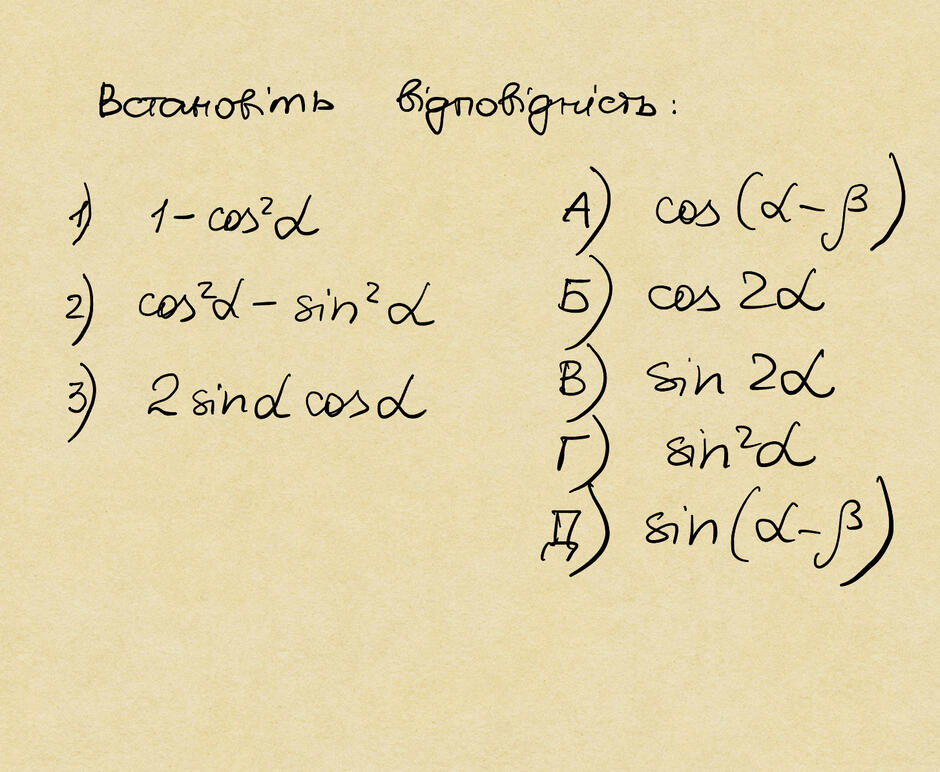 Встановіть відповідність:
1) 1 - cos²α
2) cos²α - sin²α
3) 2 sinα cosα
А) cos (α - β)
Б) cos 2α
В) sin 2α
Г) sin²α
Д) sin (α - β)